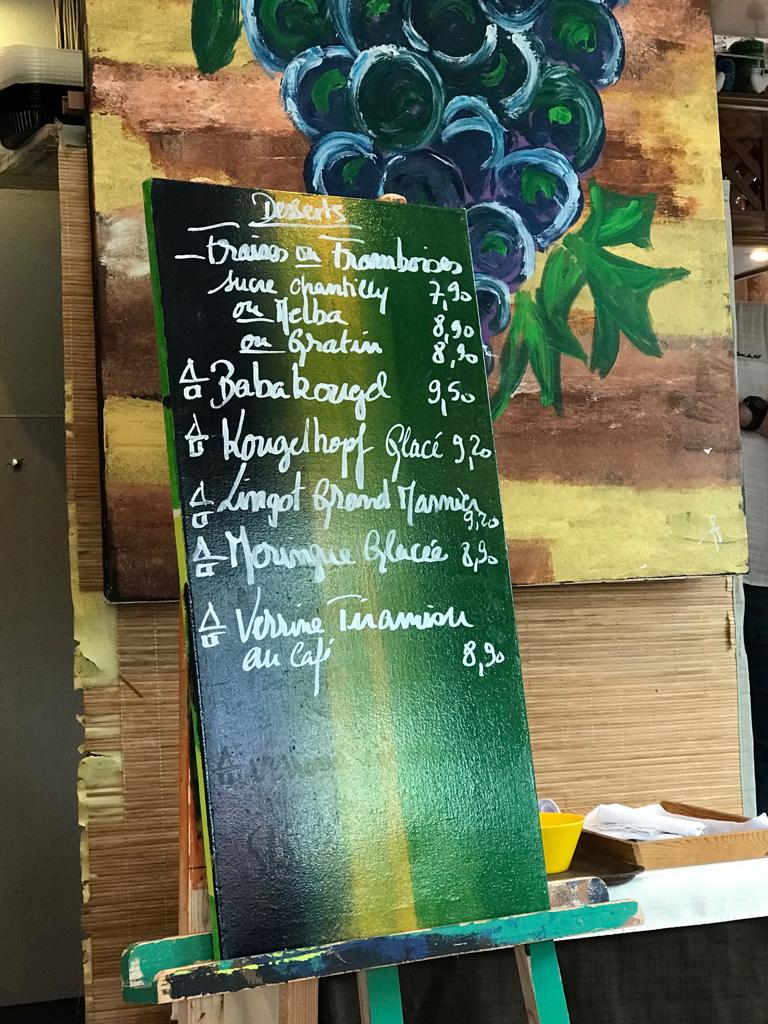 Desserts
Fraises ou Framboises
sucre chantilly 7,90
ou Melba 8,90
ou Gratin 8,90
Babakougel 9,50
Kougelhopf Glacé 9,20
Lingot Grand Marnier
9,20
Meringue Glacée 8,90
Verrine Tiramisu
au Café 8,90